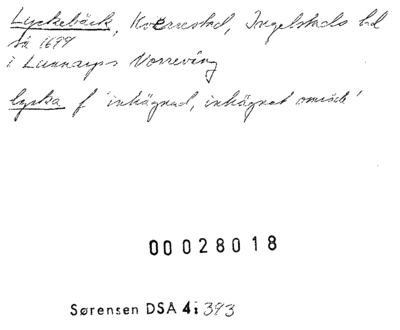 Lyckebäck, Kverrestad, Ingelstads hd
så 1699
i Lunnarps Norreväng
lycka f 'inhägnad, inhägnat område'
00028018
Sørensen DSA 4: 393